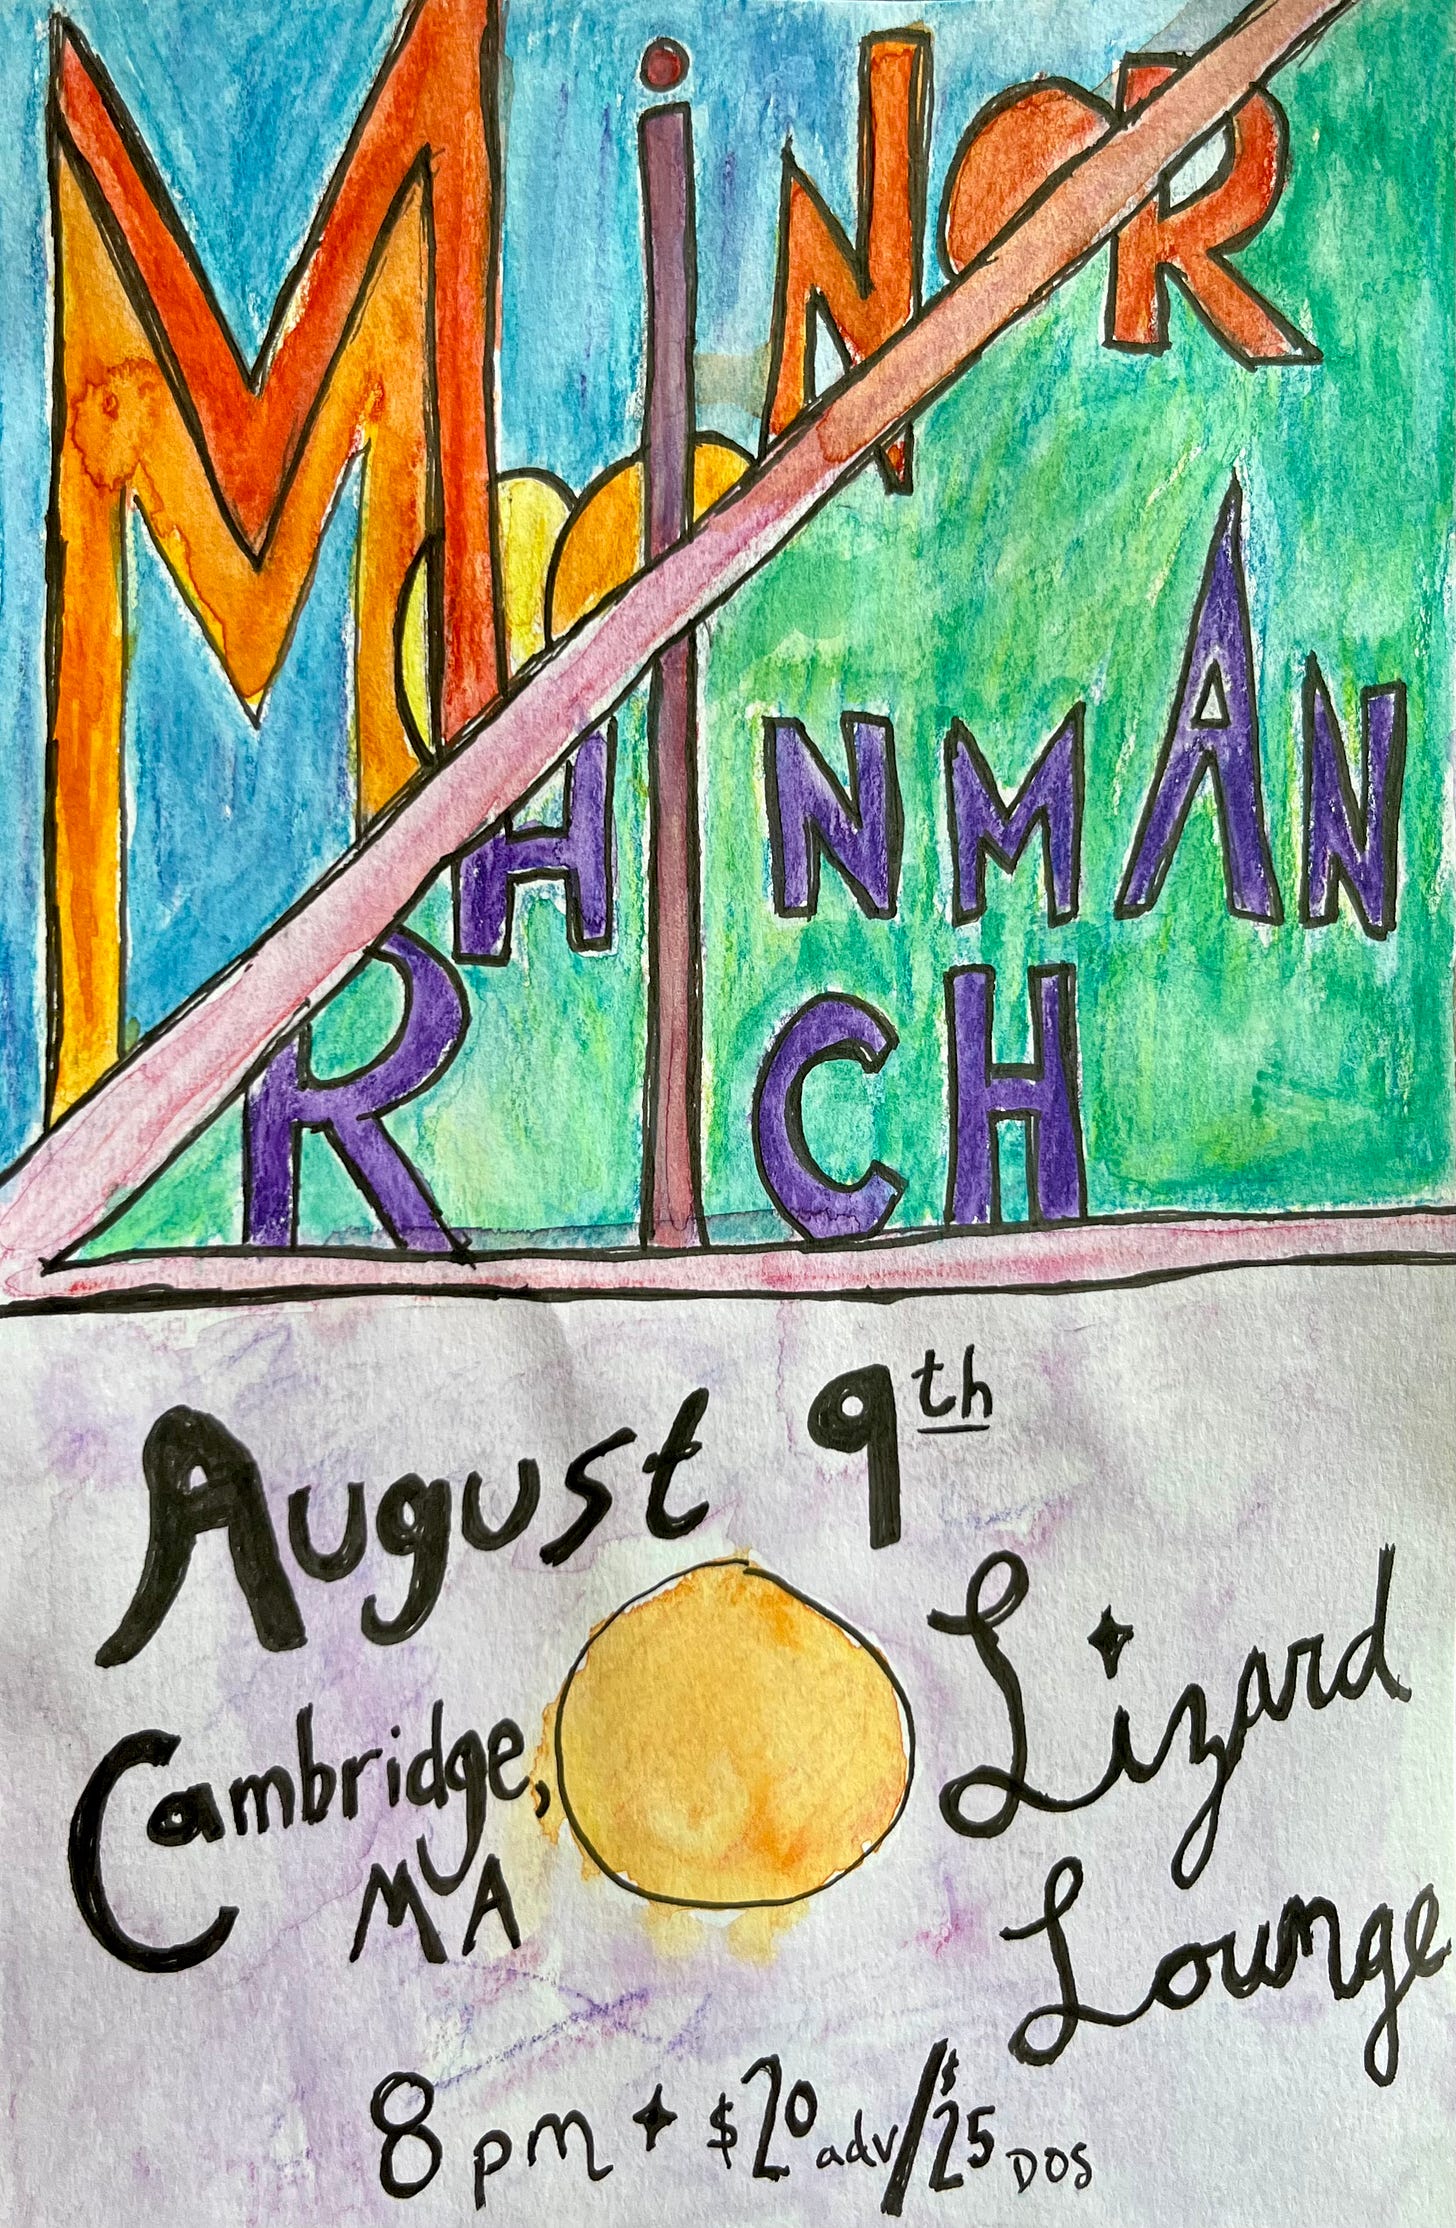 MiNOR
MOON
HiNMAN
RiCH
August 9th
Cambridge,
MA
Lizard
Lounge
8pm ✦ $20 adv/$25 DOS